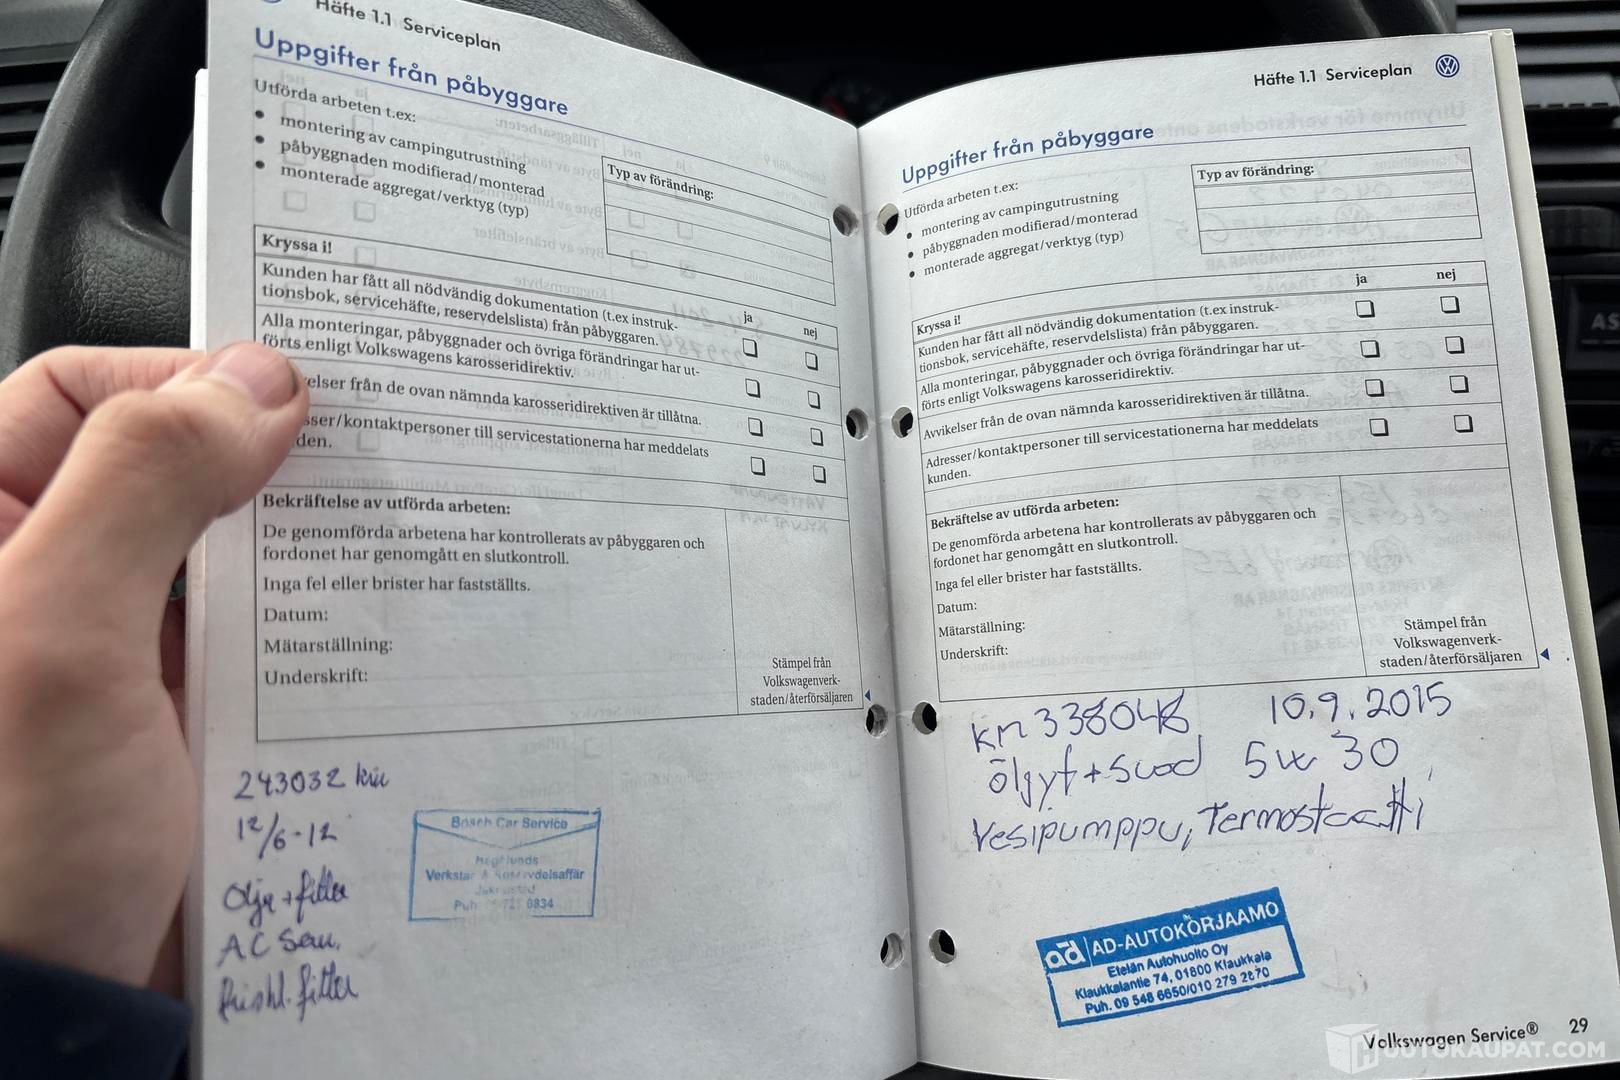 Häfte 1.1 Serviceplan
Uppgifter från påbyggare
Utförda arbeten t.ex:
• montering av campingutrustning
• påbyggnaden modifierad/monterad
• monterade aggregat/verktyg (typ)
Typ av förändring:
Kryssa i!
ja nej
Kunden har fått all nödvändig dokumentation (t.ex instruk-
tionsbok, servicehäfte, reservdelslista) från påbyggaren.
Alla monteringar, påbyggnader och övriga förändringar har ut-
förts enligt Volkswagens karosseridirektiv.
elser från de ovan nämnda karosseridirektiven är tillåtna.
sser/kontaktpersoner till servicestationerna har meddelats
den.
Bekräftelse av utförda arbeten:
De genomförda arbetena har kontrollerats av påbyggaren och
fordonet har genomgått en slutkontroll.
Inga fel eller brister har fastställts.
Datum:
Mätarställning:
Underskrift:
Stämpel från
Volkswagenverk-
staden/återförsäljaren
243032 km
12/6-12
Olja + filter
AC Serv.
friskl. filter
Bosch Car Service
Verkstad &
Puh. 0834
Häfte 1.1 Serviceplan
Uppgifter från påbyggare
Utförda arbeten t.ex:
• montering av campingutrustning
• påbyggnaden modifierad/monterad
• monterade aggregat/verktyg (typ)
Typ av förändring:
Kryssa i!
ja nej
Kunden har fått all nödvändig dokumentation (t.ex instruk-
tionsbok, servicehäfte, reservdelslista) från påbyggaren.
Alla monteringar, påbyggnader och övriga förändringar har ut-
förts enligt Volkswagens karosseridirektiv.
Avvikelser från de ovan nämnda karosseridirektiven är tillåtna.
Adresser/kontaktpersoner till servicestationerna har meddelats
kunden.
Bekräftelse av utförda arbeten:
De genomförda arbetena har kontrollerats av påbyggaren och
fordonet har genomgått en slutkontroll.
Inga fel eller brister har fastställts.
Datum:
Mätarställning:
Underskrift:
Stämpel från
Volkswagenverk-
staden/återförsäljaren
km 338048 10.9.2015
öljyt + suod 5w 30
Vesipumppu, Termostaatti
ad AD-AUTOKORJAAMO
Etelän Autohuolto Oy
Klaukkalantie 74, 01800 Klaukkala
Puh. 09 548 6650/010 279 2870
Volkswagen Service® 29
HUUTOKAUPAT.COM
AS